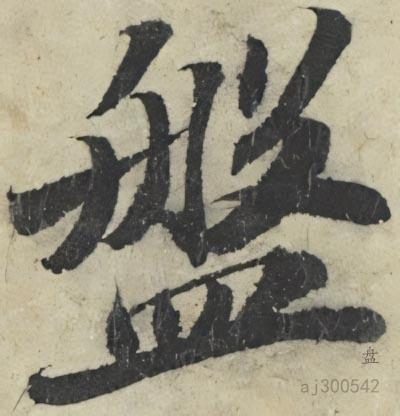 盤
盘
aj300542